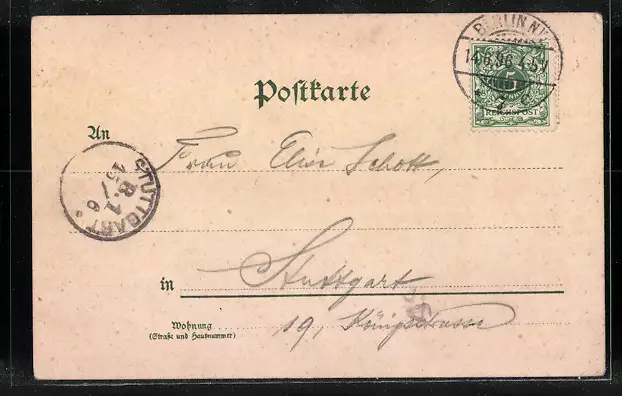 BERLIN N.W.
14.6.96. 4-5N
* 7 c
5
REICHSPOST
Postkarte
An
Frau Elise Schott,
STUTTGART
B.1
15/6
in Stuttgart
Wohnung 19, Königstrasse
(Straße und Hausnummer)